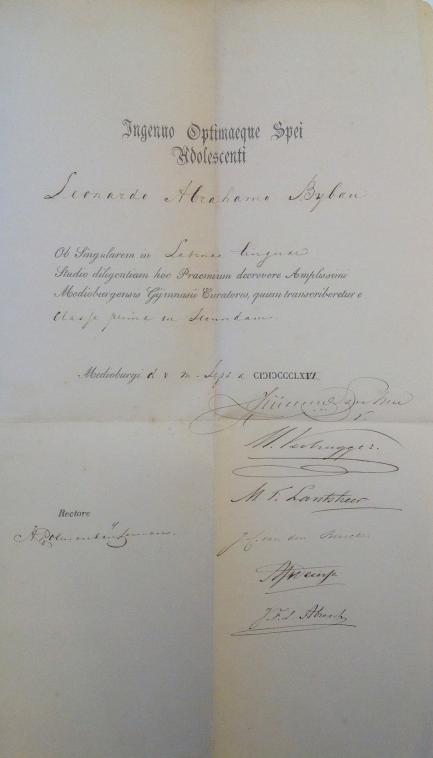 Ingenuo Optimaeque Spei
Adolescenti
Leonardo Abrahamo Bybau
Ob Singularem in Latinae linguae
Studio diligentiam hoc Praemium decrevere Amplissimi
Medioburgensis Gymnasii Curatores, quum transcriberetur e
Classe prima in secundam.
Medioburgi d V m. Sept. a
M. Verbrugge.
M F. Lantsheer
Rectore
J. C. van den
J. F. L. Abresch